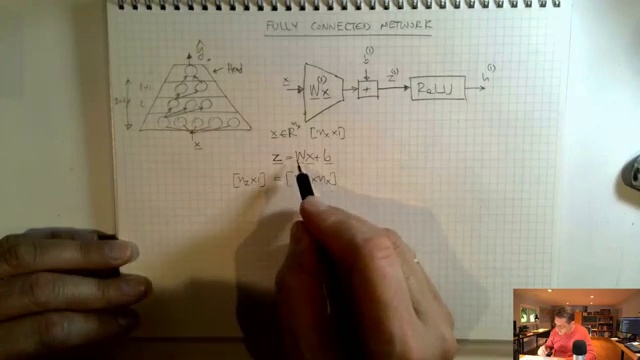 FULLY CONNECTED NETWORK
ŷ
Head
L+1
L
x
x
W x
b
+
z
ReLU
h
x ∈ R [n_x × 1]
z = Wx + b
[n_z × 1] = [ × n_x]